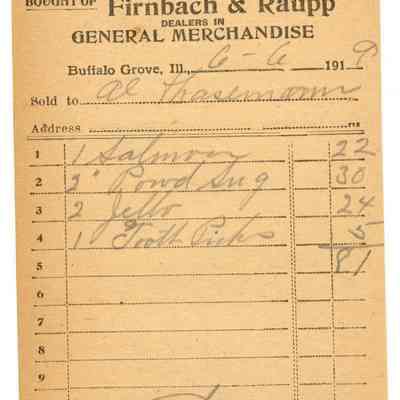 BOUGHT OF Firnbach & Raupp
DEALERS IN
GENERAL MERCHANDISE
Buffalo Grove, Ill., 6-6 1919
Sold to Al Thasemann
Address
1 1 Salmon 22
2 2" Powd Sug 30
3 2 Jello 24
4 1 Tooth Picks 5
5 81
6
7
8
9